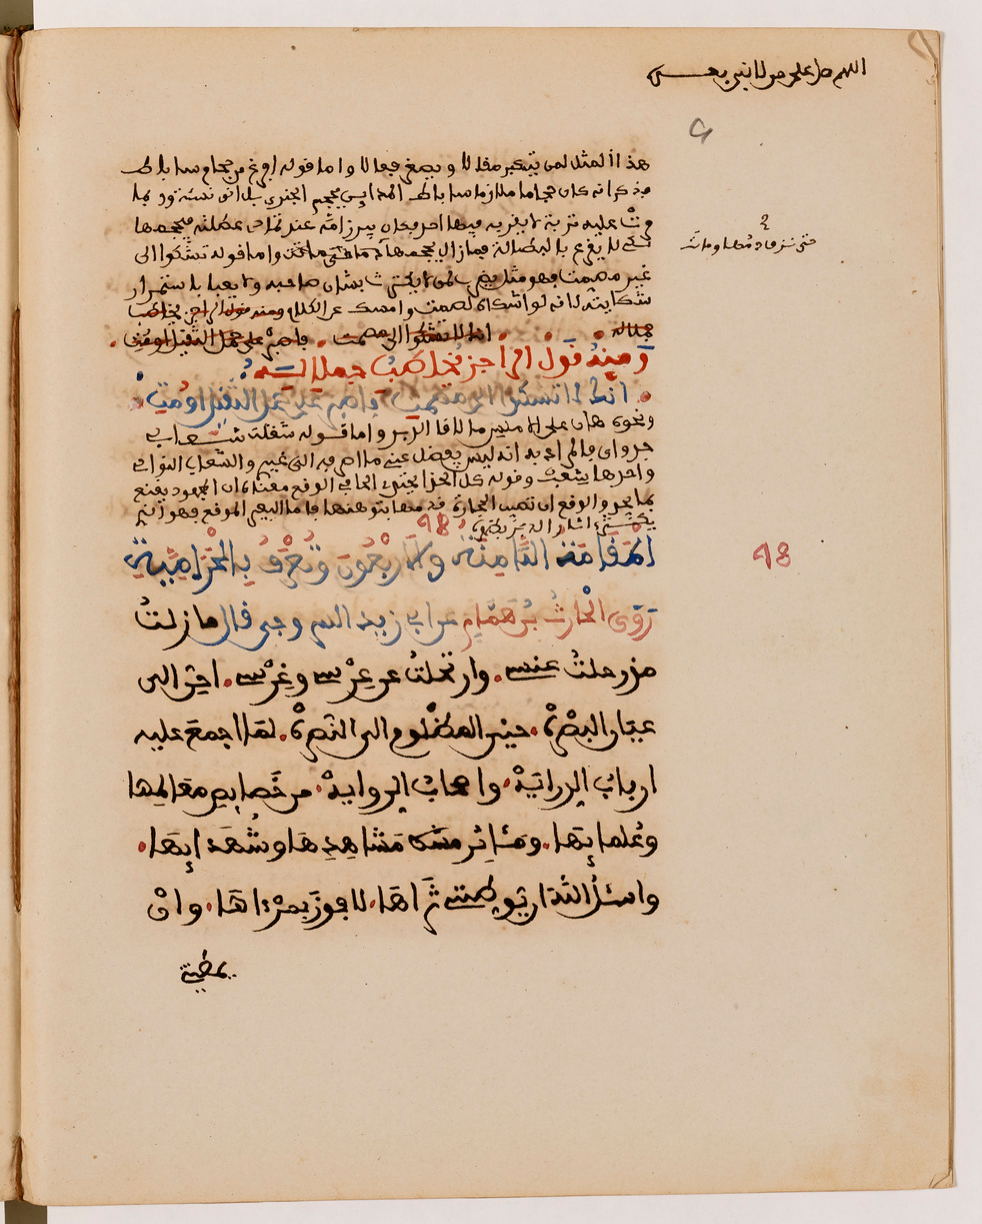 اللهم صل على مولانا نبي بعــــــــ
هذا المثل لمن يتكبر مقالا ويصغر فعالا واما قوله افرغ من حجام ساباط
فذكر انه كان حجاما ملازما ساباط المداين يحجم الجندي بدانق نسئة وربما
مرت عليه مدة لا يقربه فيها احد فكان يبرز امه عند تمادي عطلته فيحجمها
حتى نزف دمها وماتت
لكي لا يقرع بالبطالة فمازال يحجمها حتى ماتت واما قوله تشكوا الى
غير مصمت فهو مثل يضرب لمن لا يكترث بشان صاحبه ولا يعبا باستمرار
شكايته لانه لو اشكاه لصمت وامسك عن الكلام ومنه قول الراجز يخاطب
جمله
انك لا تشكوا الى مصمت فاصبر على حمل الثقيل او مت
ومنه قول الراجز يخاطب جملا له
انك لا تشكوا الى مصمت فاصبر على حمل الثقيل او مت
ونحوه هان على الاملس ما لاقى الدبر واما قوله شغلت شعابي
جدواي فالمراد به انه ليس يفضل عني ما اصرفه الى غيري والشعاب النواحي
واحدها شعب وقوله كل الحذاء يحتذي الحافي الوقع معناه ان المجهود يقنع
بما يجد والوقع ان تصيب الحجارة قدمه فتوهنها فاما البعير الموقع فهو الذي
يكثر اثار الدبر بظهره
48
المقامة الثامنة والاربعون وتعرف بالحرامية
48
روى الحارث بن همام عن ابي زيد السروجي قال ما زلت
مذ رحلت عنسي. وارتحلت عن عرسي وغرسي. احن الى
عيان البصرة. حنين المظلوم الى النصرة. لما اجمع عليه
ارباب الدراية. واصحاب الرواية. من خصايص معالمها
وعلمايها. ومئاثر مشاهدها وشهدايها.
واسئل الله ان يوطئني ثراها. لافوز بمرءاها. وان
يمطيني